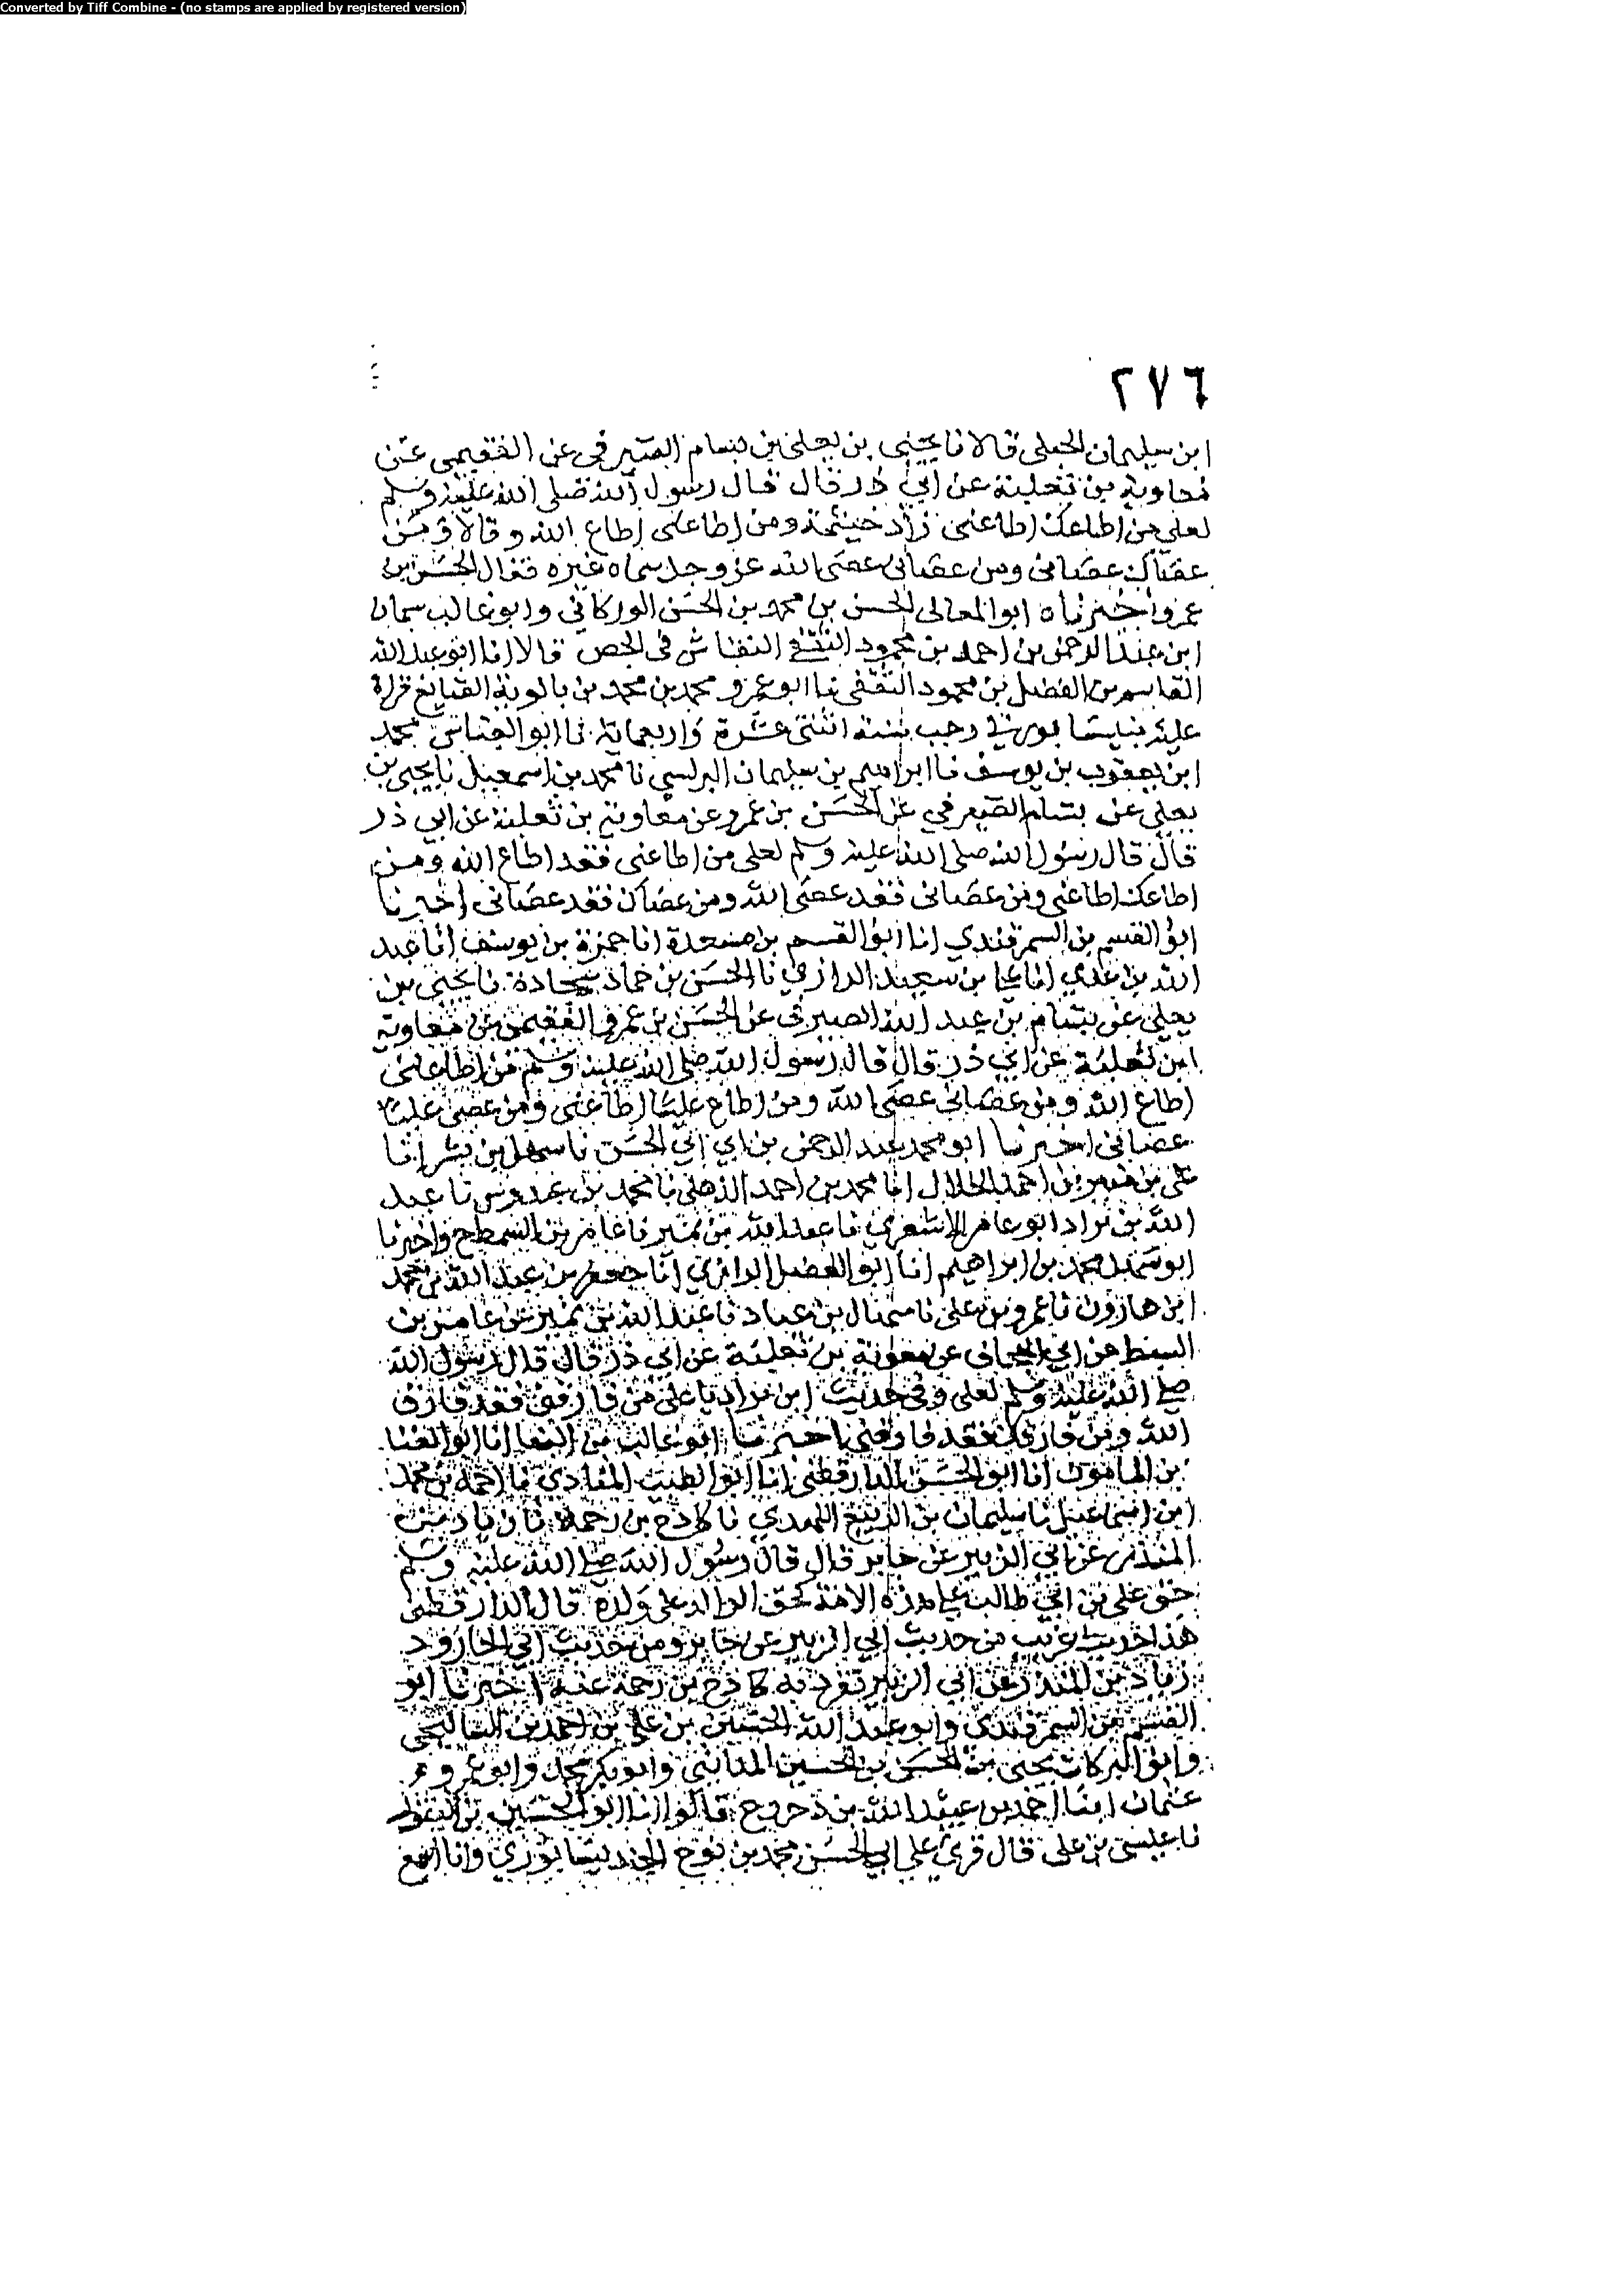 Converted by Tiff Combine - (no stamps are applied by registered version)
٢٧٦
ابن سليمان الجعلى قالا نا يحيى بن يعلى بن بسام الصيرفى عن الفقيمى عن
معاوية بن ثعلبة عن ابي ذر قال قال رسول الله صلى الله عليه وسلم
لعلى من اطاعك اطاعنى زاد خيثمة ومن اطاعنى اطاع الله وقالا ومن
عصاك عصانى ومن عصانى عصى الله عز وجل سماه غيره فقال الحسن بن
عمرو اخبرناه ابو المعالى الحسن بن محمد بن الحسن الوركانى وابو غالب سمان
ابن عبد الرحمن بن احمد بن محمود النقاش فى الجص قالا انا ابو عبد الله
القاسم بن الفضل بن محمود الثقفى نا ابو عمرو محمد بن محمد بن بالوية الصايغ قراة
عليه بنيسابور في رجب سنة اثنتى عشرة واربعماية نا ابو العباس محمد
ابن يعقوب بن يوسف نا ابراهيم بن سليمان البرلسي نا محمد بن اسمعيل نا يحيى بن
يعلى عن بسام الصيرفي عن الحسن بن عمرو عن معاوية بن ثعلبة عن ابي ذر
قال قال رسول الله صلى الله عليه وسلم لعلى من اطاعنى فقد اطاع الله ومن
اطاعك اطاعنى ومن عصانى فقد عصى الله ومن عصاك فقد عصانى اخبرنا
ابو القسم بن السمرقندي انا ابو القسم بن مسعدة انا حمزة بن يوسف انا عبد
الله بن عدي انا على بن سعيد الرازي نا الحسن بن حماد سجادة نا يحيى بن
يعلى عن بسام بن عبد الله الصيرفى عن الحسن بن عمرو الفقيمى عن معاوية
ابن ثعلبة عن ابي ذر قال قال رسول الله صلى الله عليه وسلم من اطاعنى
اطاع الله ومن عصانى عصى الله ومن اطاع عليا اطاعنى ومن عصى عليا
عصانى اخبرنا ابو محمد عبد الرحمن بن ابي الحسن نا سهل بن بشر انا
على بن منير بن احمد الخلال انا محمد بن احمد الذهلى نا محمد بن عبدوس نا عبد
الله بن براد ابو عامر الاشعري نا عبد الله بن نمير نا عامر بن السمط ح واخبرنا
ابو سهل محمد بن ابراهيم انا ابو الفضل الرازي انا جعفر بن عبد الله نا محمد
ابن هارون نا عمرو بن على نا سهل بن عباد نا عبد الله بن نمير عن عامر بن
السمط عن ابي الجحاف عن معوية بن ثعلبة عن ابي ذر قال قال رسول الله
صلى الله عليه وسلم لعلى وفى حديث ابن براد يا على من فارقنى فقد فارق
الله ومن فارقك فقد فارقنى اخبرنا ابو غالب بن البنا انا ابو الغنا
بن المامون انا ابو الحسن الدارقطنى انا ابو الطيب المنادي نا احمد بن محمد
ابن اسماعيل نا سليمان بن الربيع النهدي نا كادح بن رحمة نا زياد بن
المنذر عن ابي الزبير عن جابر قال قال رسول الله صلى الله عليه وسلم
حق على بن ابي طالب على هذه الامة كحق الوالد على ولده قال الدارقطنى
هذا حديث غريب من حديث ابي الزبير عن جابر ومن حديث ابي الجارود
زياد بن المنذر عن ابى الزبير تفرد به كادح بن رحمة عنه اخبرنا ابو
القسم بن السمرقندى وابو عبد الله الحسين بن على بن احمد بن
وابو البركات يحيى بن الحسن بن الحسين المداينى وابو بكر محمد وابو عمرو
عثمان ابنا احمد بن عبيد الله بن دحروج قالوا انا ابو الحسين بن النقور
نا عيسى بن على قال قرئ على ابي الحسن محمد بن نوح الجنديسابوري وانا اسمع